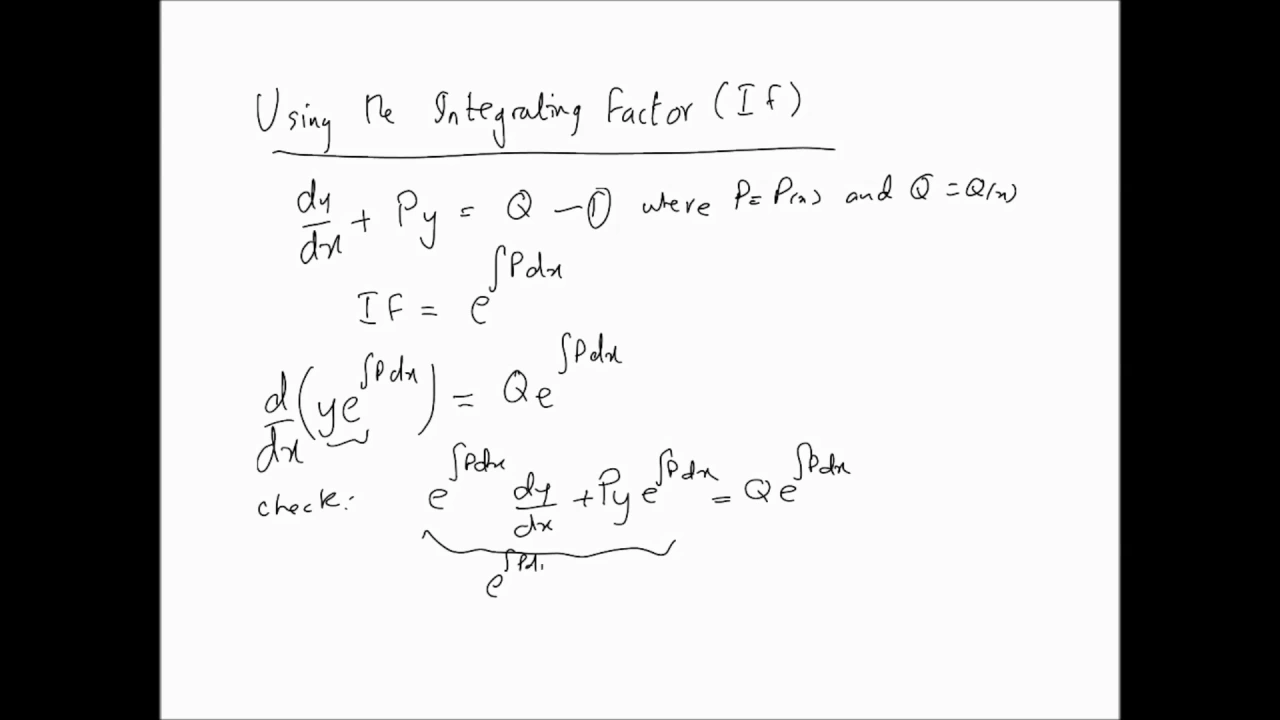 Using the Integrating Factor (IF)
dy/dx + Py = Q — ① where P = P(x) and Q = Q(x)
IF = e^∫Pdx
d/dx (ye^∫Pdx) = Qe^∫Pdx
check: e^∫Pdx dy/dx + Py e^∫Pdx = Qe^∫Pdx
e^∫Pd